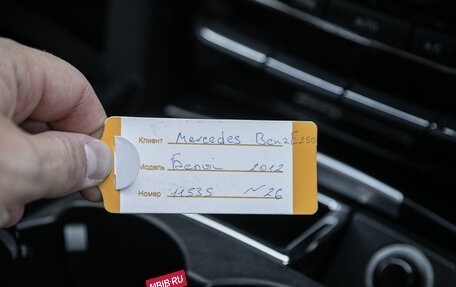 Клиент Mercedes Benz E250
Модель Белый 2012
Номер 11535 N26
MBIB.RU